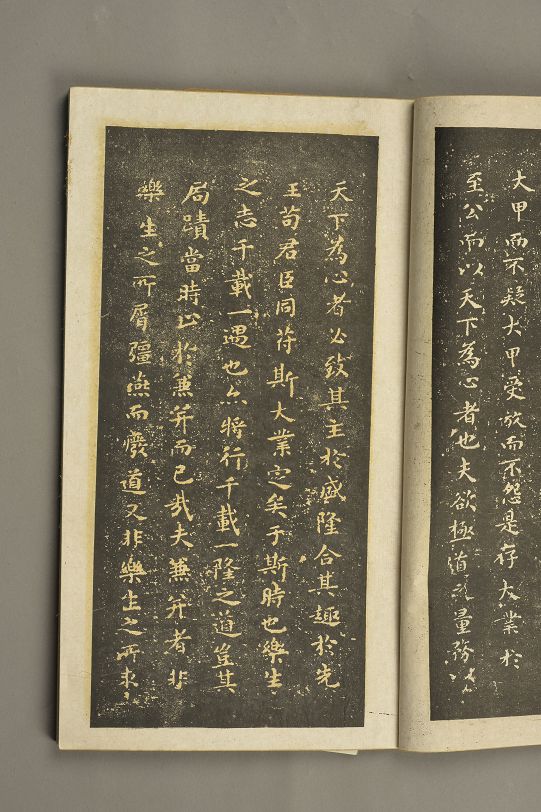 大甲而不疑大甲受放而不怨是存大業於
至公而以天下為心者也夫欲極道之量務以
天下為心者必致其主於盛隆合其趣於先
王苟君臣同符斯大業定矣于斯時也樂生
之志千載一遇也亦將行千載一隆之道豈其
局蹟當時止於兼并而已哉夫兼并者非
樂生之所屑彊燕而廢道又非樂生之所求